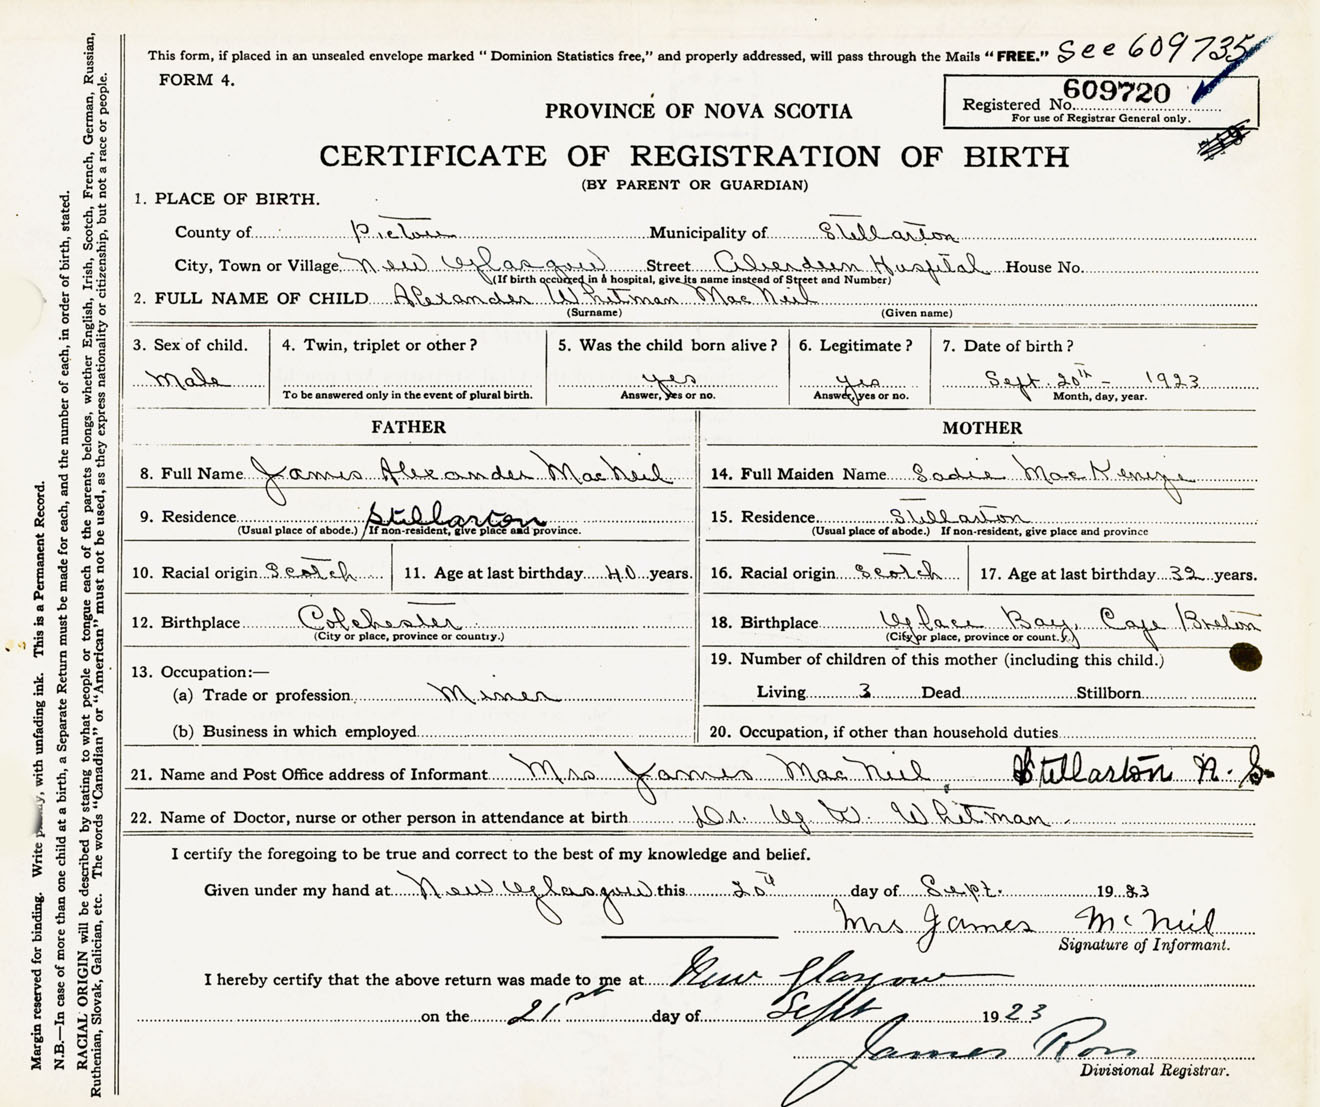 This form, if placed in an unsealed envelope marked "Dominion Statistics free," and properly addressed, will pass through the Mails "FREE." See 609735
FORM 4.
609720
Registered No.
For use of Registrar General only.
PROVINCE OF NOVA SCOTIA
CERTIFICATE OF REGISTRATION OF BIRTH
(BY PARENT OR GUARDIAN)
1. PLACE OF BIRTH.
County of Pictou Municipality of Stellarton
City, Town or Village New Glasgow Street Aberdeen Hospital House No.
(If birth occurred in a hospital, give its name instead of Street and Number)
2. FULL NAME OF CHILD Alexander Whitman MacNeil
(Surname) (Given name)
3. Sex of child. 4. Twin, triplet or other? 5. Was the child born alive? 6. Legitimate? 7. Date of birth?
Male yes yes Sept. 20th - 1923
To be answered only in the event of plural birth. Answer, yes or no. Answer, yes or no. Month, day, year.
FATHER MOTHER
8. Full Name James Alexander MacNeil 14. Full Maiden Name Sadie MacKenize
9. Residence Stellarton 15. Residence Stellarton
(Usual place of abode.) If non-resident, give place and province. (Usual place of abode.) If non-resident, give place and province
10. Racial origin Scotch 11. Age at last birthday 40 years. 16. Racial origin Scotch 17. Age at last birthday 32 years.
12. Birthplace Colchester 18. Birthplace Glace Bay, Cape Breton
(City or place, province or country.) (City or place, province or count.y.)
13. Occupation:— 19. Number of children of this mother (including this child.)
(a) Trade or profession Miner Living 3 Dead Stillborn
(b) Business in which employed 20. Occupation, if other than household duties
21. Name and Post Office address of Informant Mrs James MacNeil Stellarton N. S.
22. Name of Doctor, nurse or other person in attendance at birth Dr. G. W. Whitman
I certify the foregoing to be true and correct to the best of my knowledge and belief.
Given under my hand at New Glasgow this 20th day of Sept. 1923
Mrs James McNeil
Signature of Informant.
I hereby certify that the above return was made to me at New Glasgow
on the 21st day of Sept 1923
James Ross
Divisional Registrar.
Margin reserved for binding. Write plainly, with unfading ink. This is a Permanent Record.
N.B.—In case of more than one child at a birth, a Separate Return must be made for each, and the number of each, in order of birth, stated.
RACIAL ORIGIN will be described by stating to what people or tongue each of the parents belongs, whether English, Irish, Scotch, French, German, Russian,
Ruthenian, Slovak, Galician, etc. The words "Canadian" or "American" must not be used, as they express nationality or citizenship, but not a race or people.